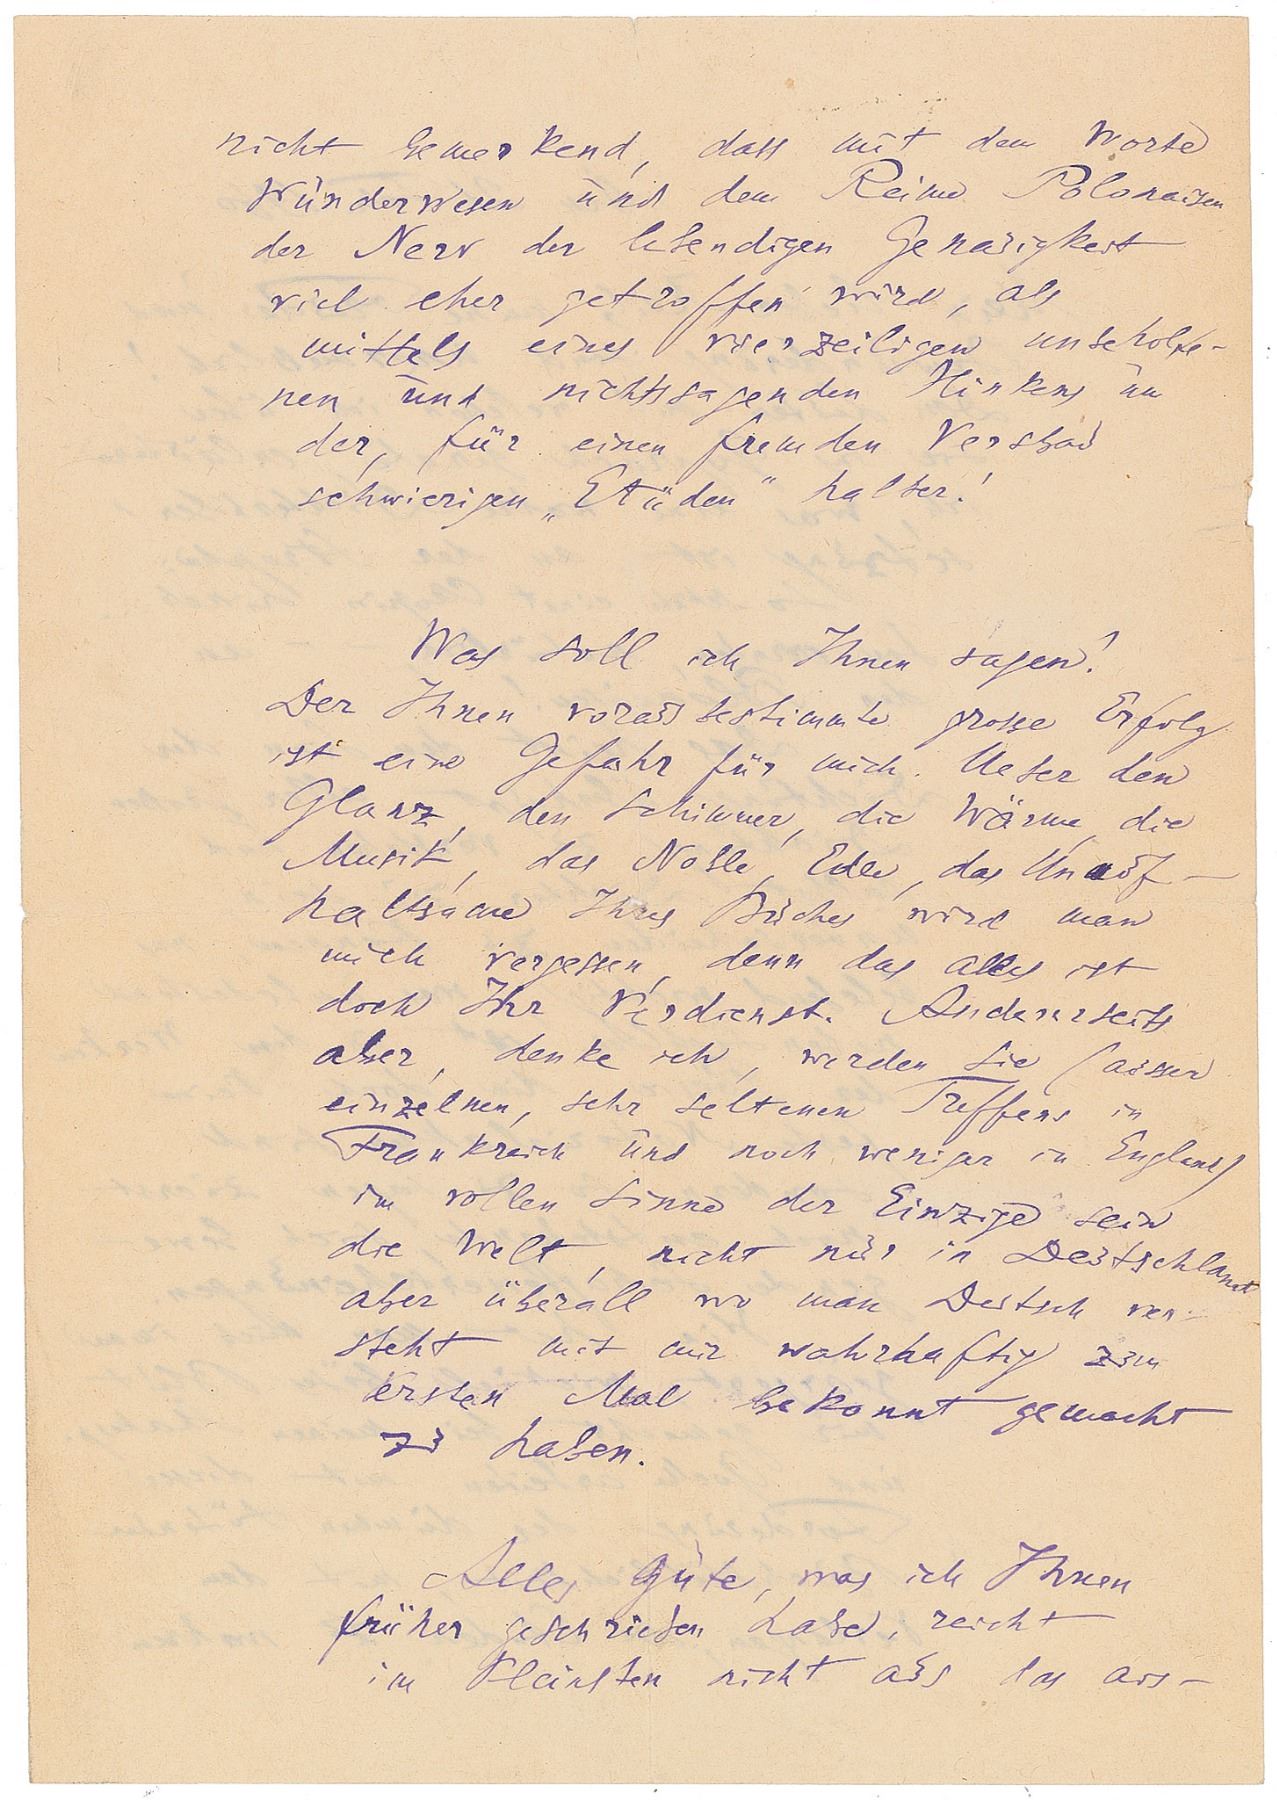 nicht bemerkend, dass mit dem Worte
Wunderwesen und dem Reime Polonaisen
der Nerv der lebendigen Genauigkeit
viel eher getroffen wird, als
mittels eines vierzeiligen unbeholfe-
nen und nichtssagenden Hinkens um
der, für einen fremden Versbau
schwierigen „Etüden" halber!
Was soll ich Ihnen sagen!
Der Ihnen vorausbestimmte grosse Erfolg
ist eine Gefahr für mich. Ueber den
Glanz, den Schimmer, die Wärme, die
Musik, das Noble, Edle, das Unauf-
haltsame Ihres Buches wird man
mich vergessen, denn das alles ist
doch Ihr Verdienst. Andererseits
aber, denke ich, werden Sie (ausser
einzelnen, sehr seltenen Treffens in
Frankreich und noch weniger in England)
im vollen Sinne der Einzige sein
die Welt, nicht nur in Deutschland
aber überall wo man Deutsch ver-
steht mit mir wahrhaftig zum
ersten Mal bekannt gemacht
zu haben.
Alles Gute, was ich Ihnen
früher geschrieben habe, reicht
im Kleinsten nicht aus das aus-